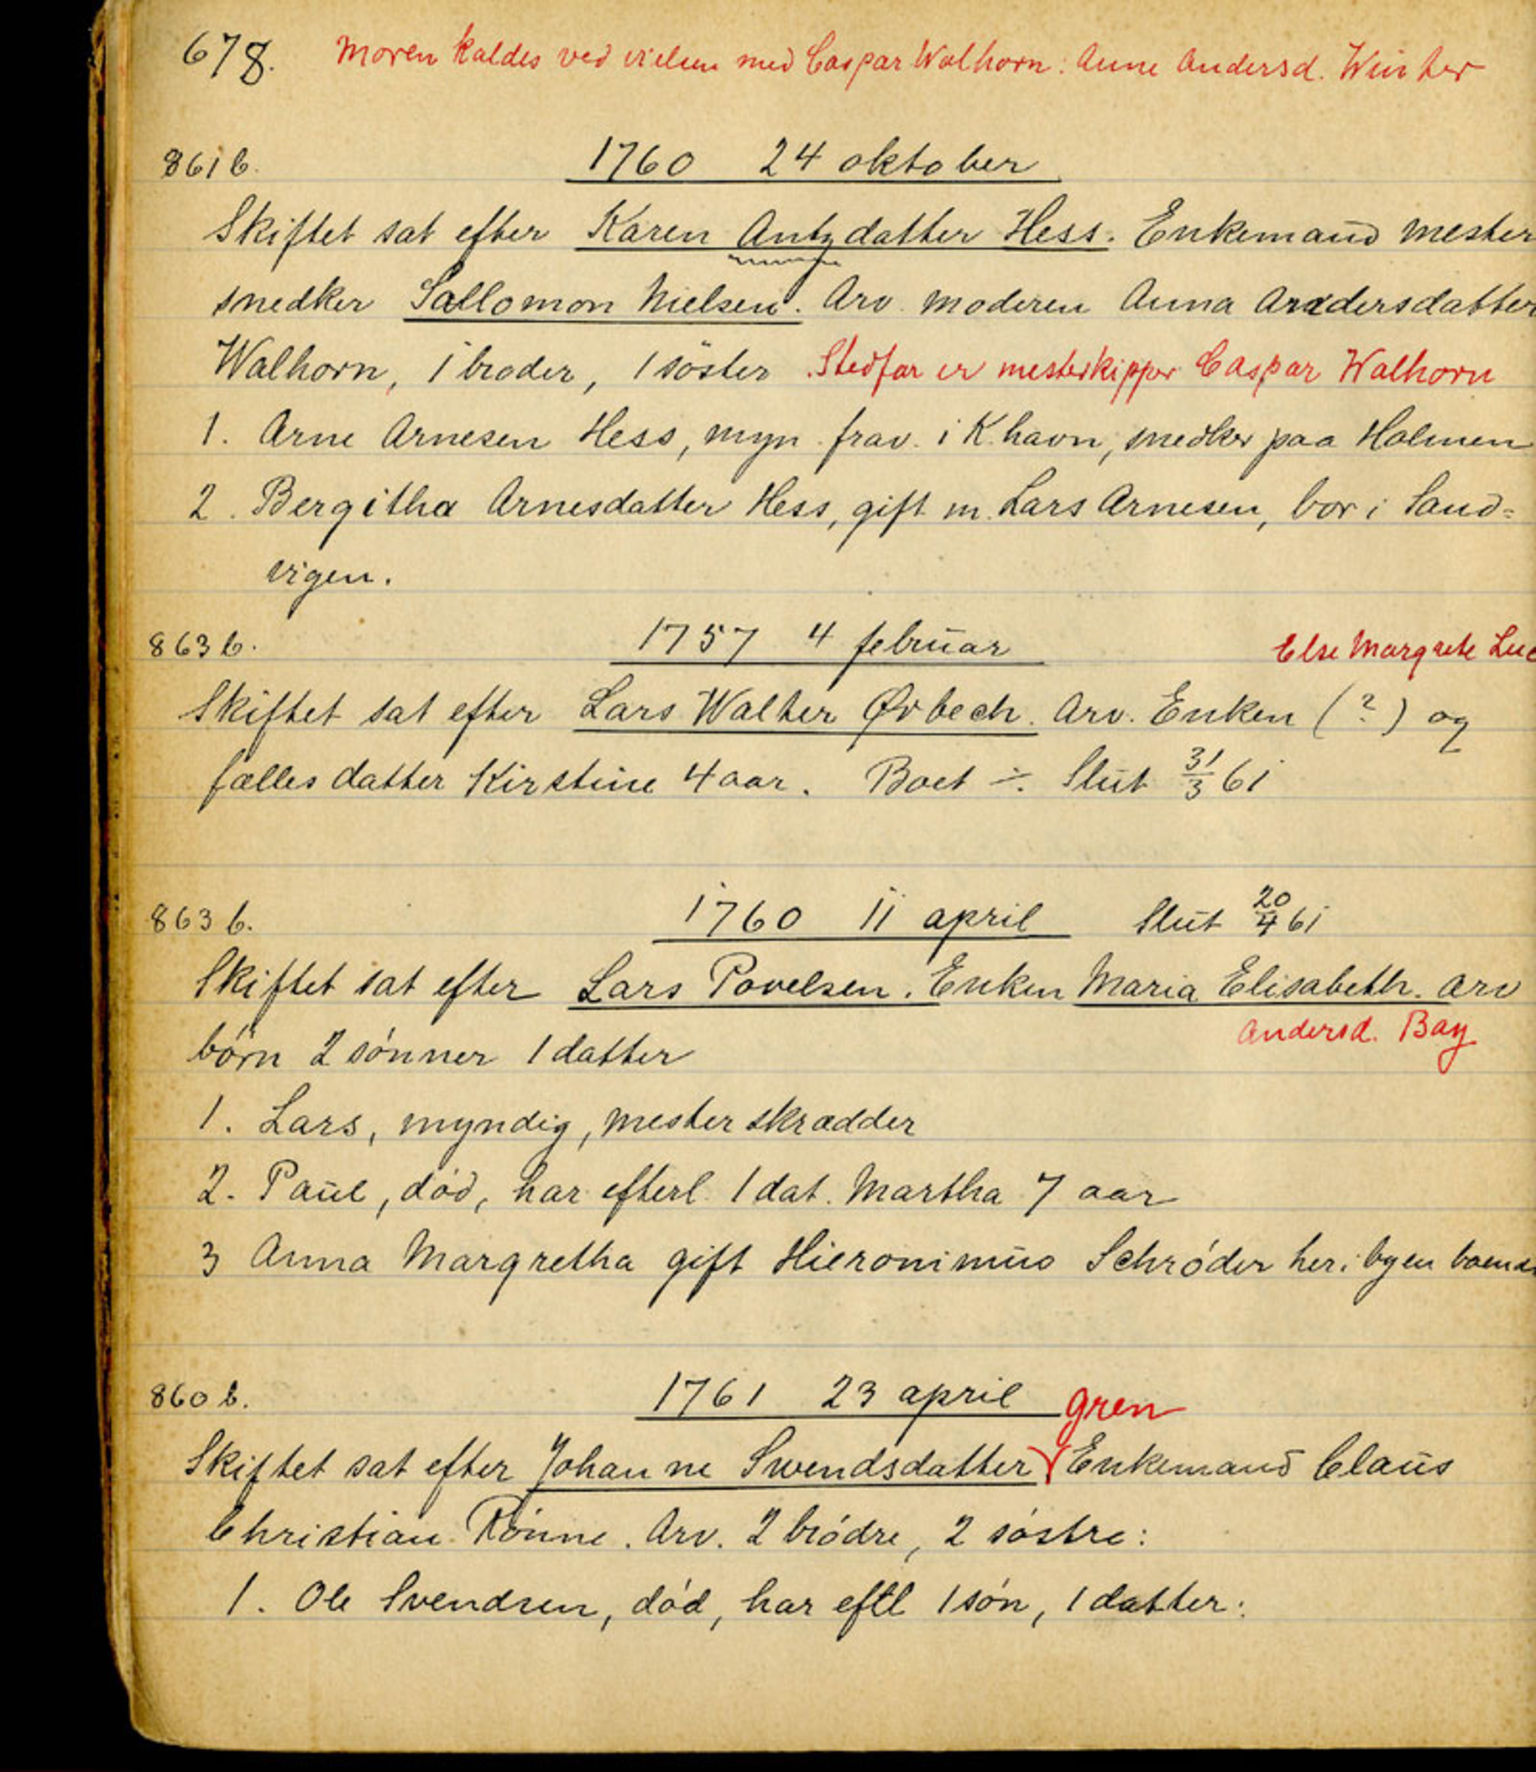 678. Moren kaldes ved vielsen med Caspar Walhorn: Anne Andersd. Winter
861 b. 1760 24 oktober
Skiftet sat efter Karen Antzdatter Hess. Enkemand mester
snedker Sallomon Nielsen. Arv. moderen Anna Andersdatter
Walhorn, 1 broder, 1 söster. Stedfar er mesterkipper Caspar Walhorn
1. Arne Arnesen Hess, myn. frav. i K.havn, snedker paa Holmen
2. Bergitha Arnesdatter Hess, gift m. Lars Arnesen, bor i Sand=
vigen.
863 b. 1757 4 februar Else Margrete
Skiftet sat efter Lars Walter Ørbech. Arv. Enken (?) og
fælles datter Kirstine 4 aar. Boet ÷. Slut 31/3 61
863 b. 1760 11 april Slut 20/4 61
Skiftet sat efter Lars Povelsen. Enken Maria Elisabeth. Arv
Andersd. Bay
börn 2 sónner 1 datter
1. Lars, myndig, mester skrædder
2. Paul, död, har efterl. 1 dat. Martha 7 aar
3 Anna Margretha gift Hieronimus Schróder her i byen
860 b. 1761 23 april gren
Skiftet sat efter Johanne Swendsdatter Enkemand Claus
Christian Rónne. Arv. 2 bródre, 2 sóstre:
1. Ole Svendsen, dód, har eftl 1 són, 1 datter: